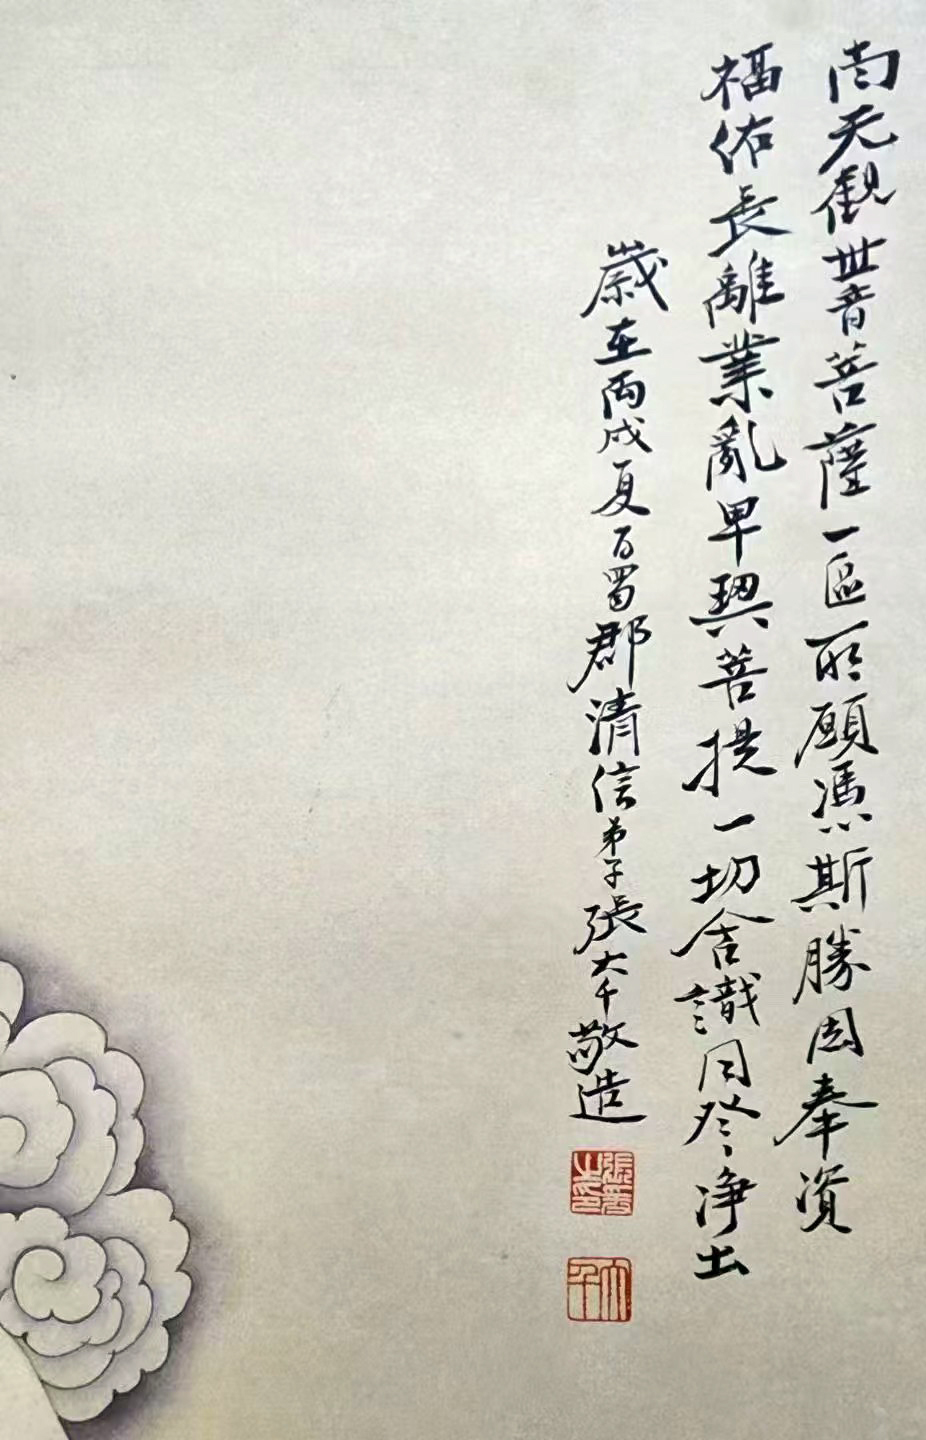 南无觀世音菩薩一區所願憑斯勝因奉資
福佑長離業亂早契菩提一切含識同登净土
歲在丙戌夏日蜀郡清信弟子張大千敬造
張爰之印
大千